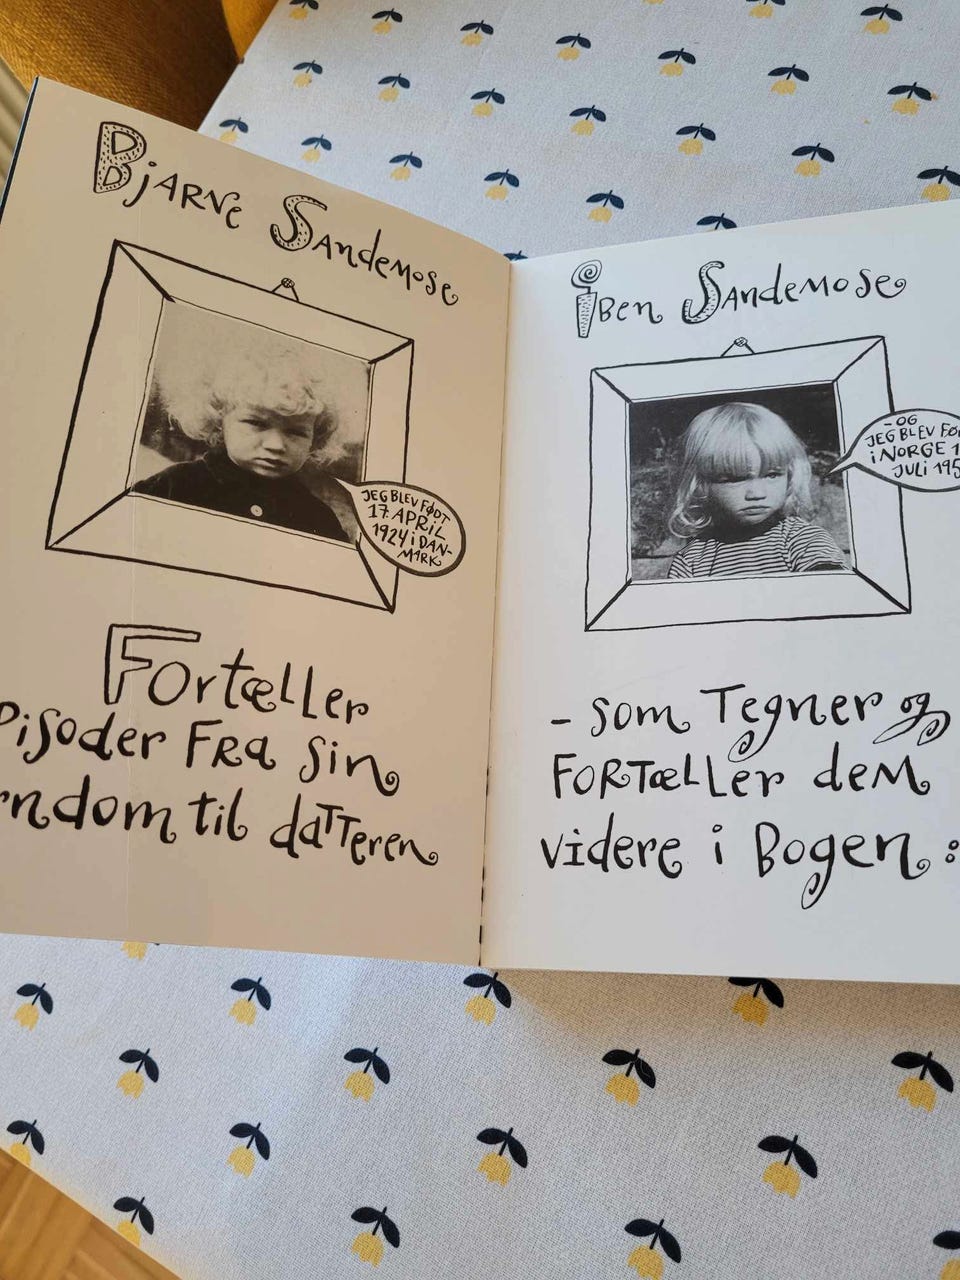 Bjarne Sandemose
JEG BLEV FØDT
17. APRIL
1924 i DAN-
MARK
Fortæller
pisoder fra sin
ndom til datteren
Iben Sandemose
- OG
JEG BLEV FØ
i NORGE 1
JULI 195
- som tegner og
fortæller dem
videre i bogen: